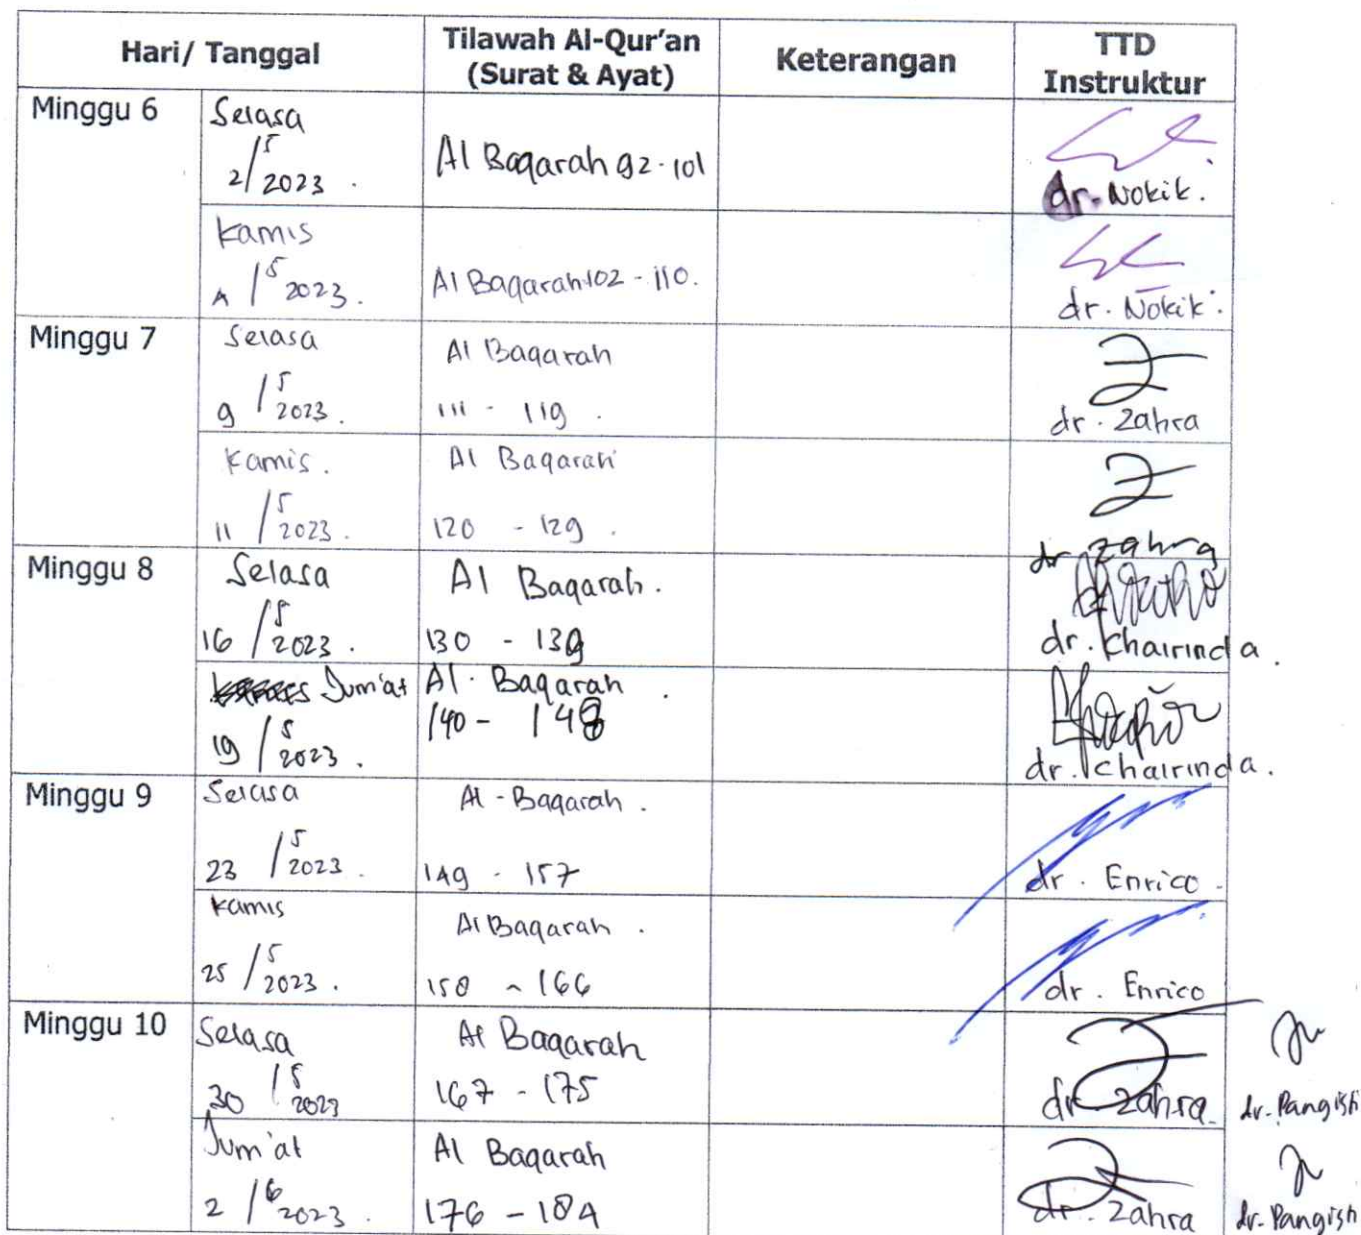 Hari/ Tanggal
Tilawah Al-Qur'an
(Surat & Ayat)
Keterangan
TTD
Instruktur
Minggu 6
Selasa
2/5 2023 .
Al Baqarah 92 - 101
dr. Nokik.
Kamis
4 /5 2023 .
Al Baqarah 102 - 110.
dr. Nokik.
Minggu 7
Selasa
9 /5 2023 .
Al Baqarah
111 - 119 .
dr. Zahra
Kamis .
11 /5 2023 .
Al Baqarah
120 - 129 .
dr Zahra
Minggu 8
Selasa
16 /5 2023 .
Al Baqarah .
130 - 139
dr. Khairinda .
Jum'at
19 /5 2023 .
Al . Baqarah .
140 - 148
dr. Khairinda .
Minggu 9
Selasa
23 /5 2023 .
Al - Baqarah .
149 - 157
dr . Enrico .
Kamis
25 /5 2023 .
Al Baqarah .
158 - 166
dr . Enrico
Minggu 10
Selasa
30 /5 2023
Al Baqarah
167 - 175
dr Zahra
dr. Pangisti
Jum'at
2 /6 2023 .
Al Baqarah
176 - 184
dr. Zahra
dr. Pangisti